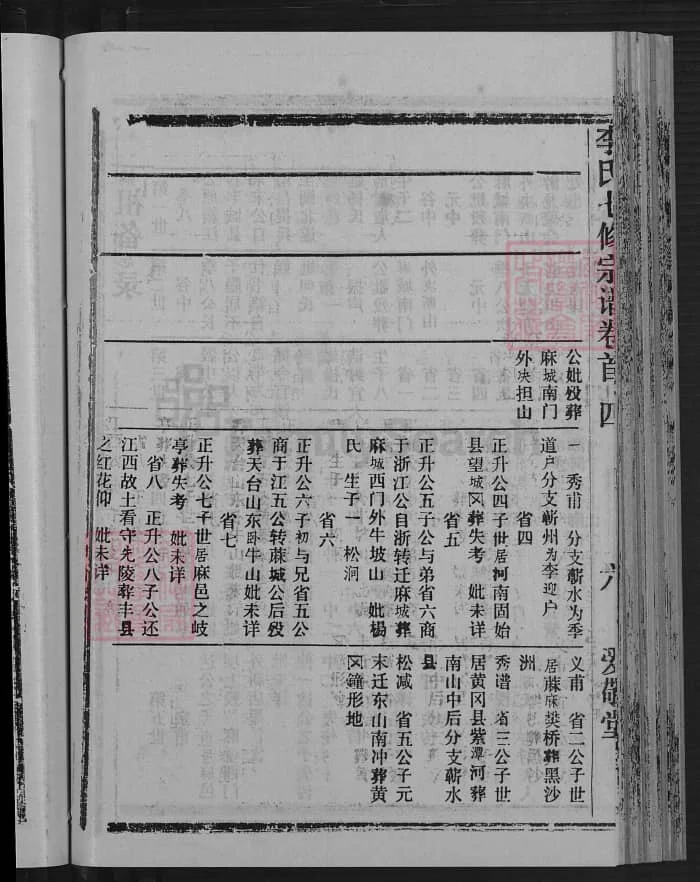 李氏七修宗谱卷首
四
六
爱敬堂
公妣殁葬
麻城南门
外决担山
一 秀甫 分支蕲水为季
道户分支蕲州为李迎户
省四
正升公四子世居河南固始
县望城冈葬失考 妣未详
省五
正升公五子公与弟省六商
于浙江公自浙转迁麻城葬
麻城西门外牛坡山 妣杨
氏 生子一 松涧
省六
正升公六子初与兄省五公
商于江五公转蔴城公后殁
葬天台山东卧牛山妣未详
省七
正升公七子世居麻邑之岐
亭葬失考 妣未详
省八 正升公八子公还
江西故土看守先陵葬丰县
之红花仰 妣未详
义甫 省二公子世
居蔴麻樊桥葬黑沙
洲
秀谱 省三公子世
居黄冈县紫潭河葬
南山中后分支蕲水
县
松减 省五公子元
末迁东山南冲葬黄
冈钟形地